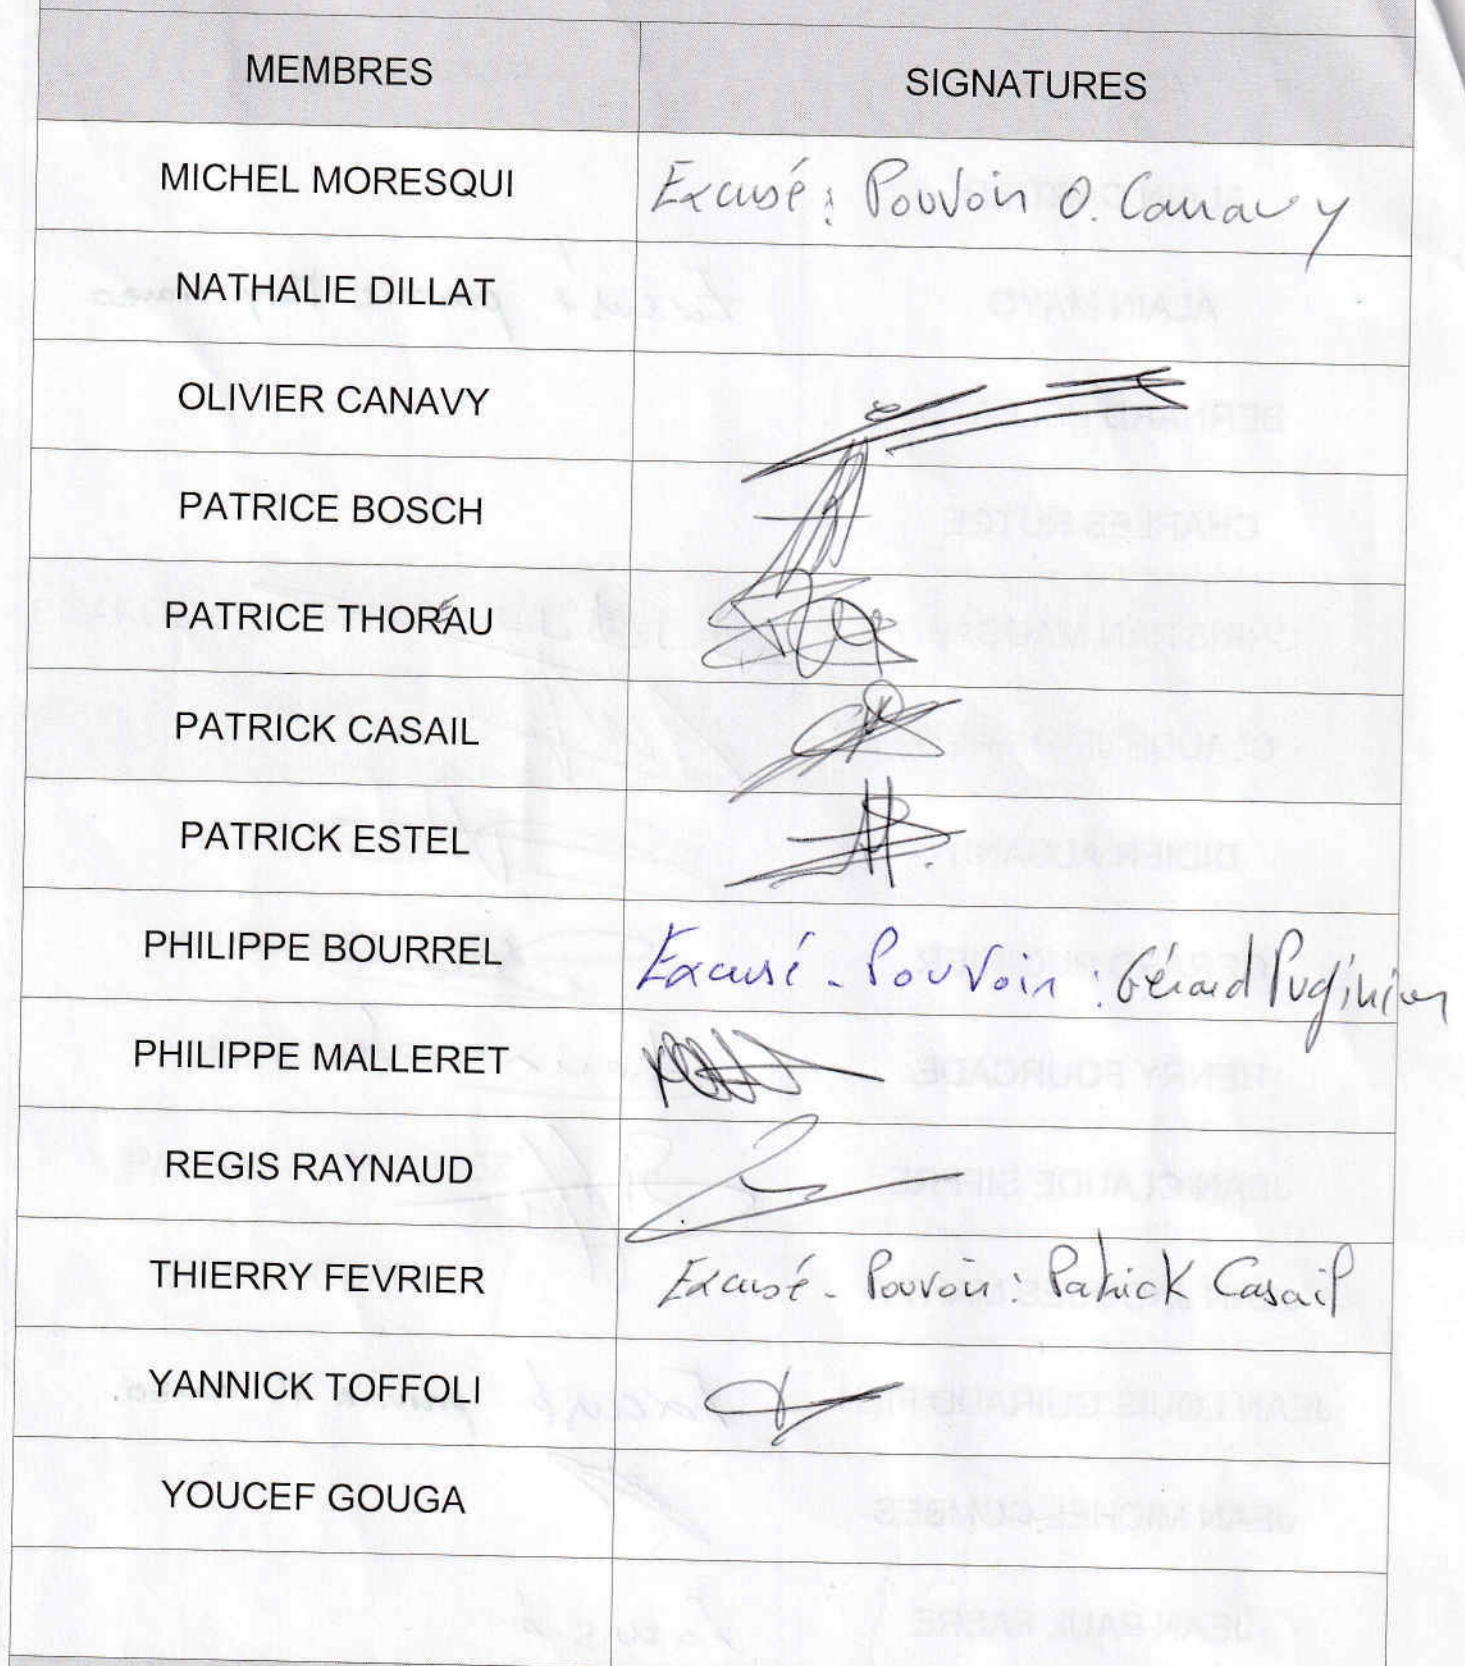 MEMBRES SIGNATURES
MICHEL MORESQUI Excusé : Pouvoir O. Canavy
NATHALIE DILLAT
OLIVIER CANAVY
PATRICE BOSCH
PATRICE THORÉAU
PATRICK CASAIL
PATRICK ESTEL
PHILIPPE BOURREL Excusé - Pouvoir : Gérard Puginier
PHILIPPE MALLERET
REGIS RAYNAUD
THIERRY FEVRIER Excusé - Pouvoir : Patrick Casail
YANNICK TOFFOLI
YOUCEF GOUGA